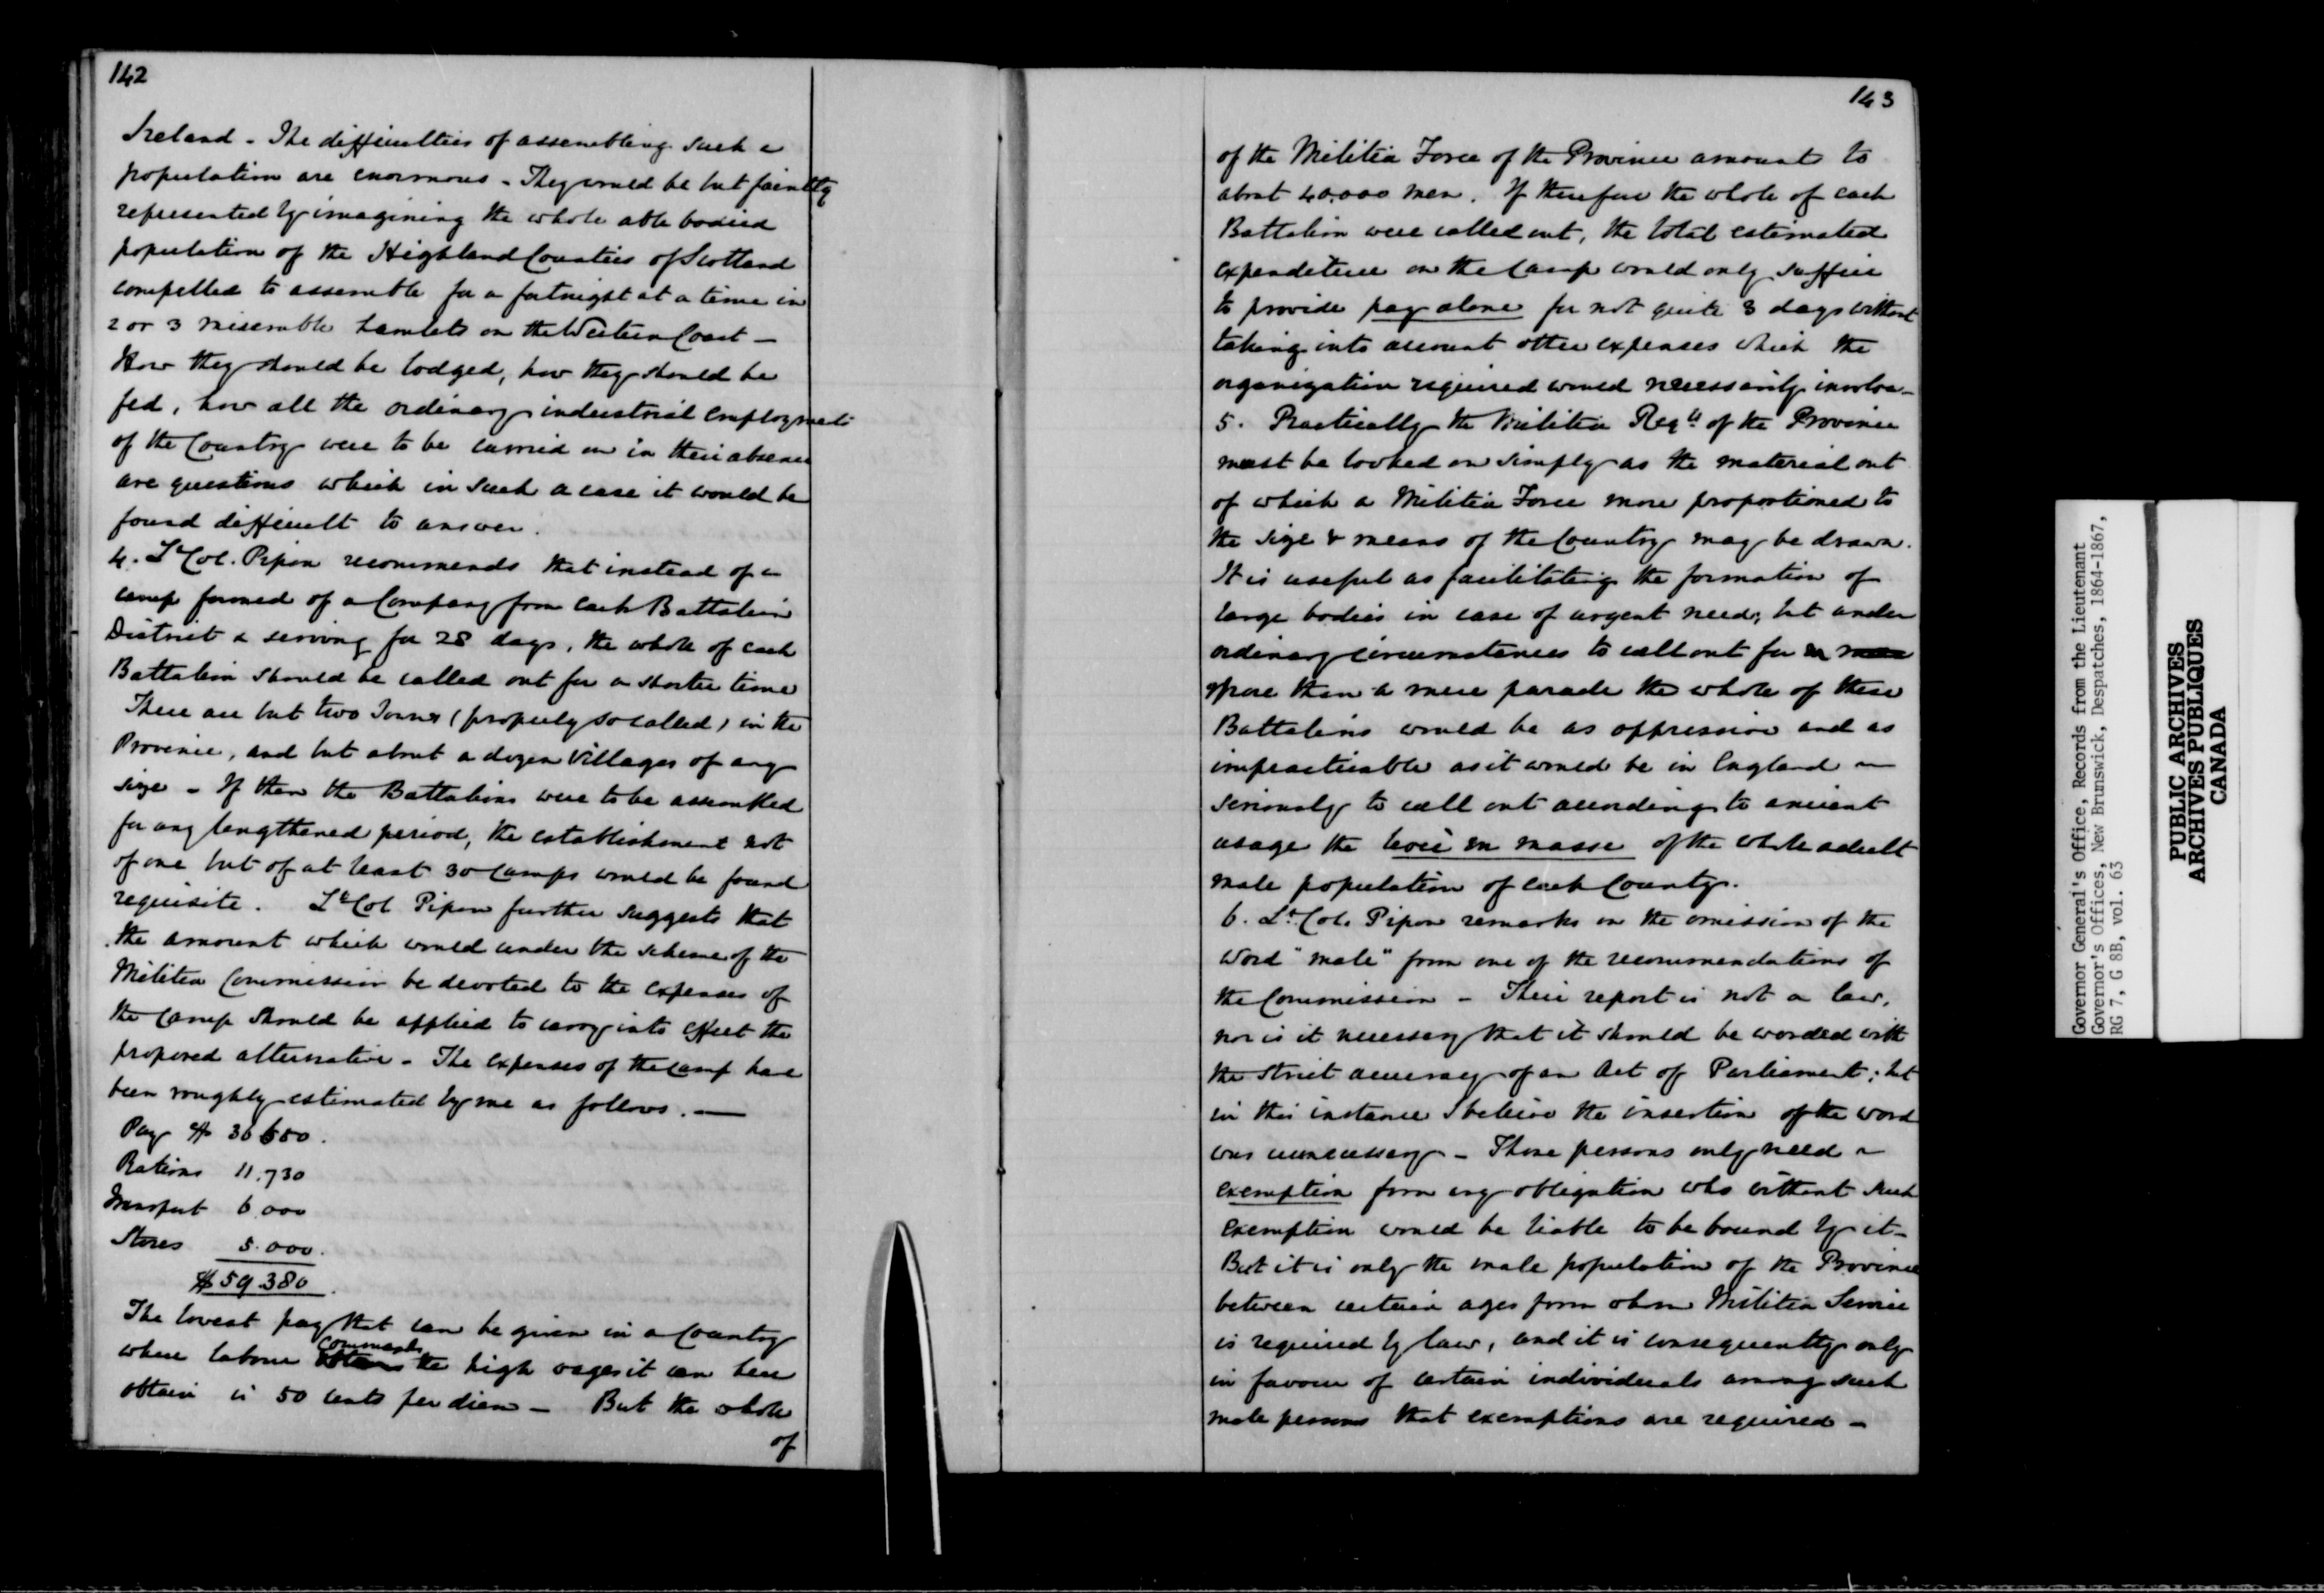 142
Ireland - The difficulties of assembling such a
population are enormous - They would be but faintly
represented by imagining the whole able bodied
population of the Highland Counties of Scotland
compelled to assemble for a fortnight at a time in
2 or 3 miserable hamlets on the Western Coast -
How they should be lodged, how they should be
fed, how all the ordinary industrial employments
of the Country were to be carried on in their absence
are questions which in such a case it would be
found difficult to answer.
4. Lt Col. Pipon recommends that instead of a
camp formed of a Company from each Battalion
District & serving for 28 days, the whole of each
Battalion should be called out for a shorter time
There are but two Towns (properly so called) in the
Province, and but about a dozen Villages of any
size - If then the Battalions were to be assembled
for any lengthened period, the establishment not
of one but of at least 30 camps would be found
requisite. Lt Col Pipon further suggests that
the amount which would under the scheme of the
Militia Commission be devoted to the expenses of
the Camp should be applied to carry into effect the
proposed alternative - The expenses of the camp have
been roughly estimated by me as follows. —
Pay $ 36650.
Rations 11.730
Transport 6.000
Stores 5.000.
$ 59.380.
The lowest pay that can be given in a Country
where labour commands the high wages it can here
obtain is 50 cents per diem - But the whole
of
143
of the Militia Force of the Province amounts to
about 40.000 men. If therefore the whole of each
Battalion were called out, the total estimated
expenditure on the Camp would only suffice
to provide pay alone for not quite 3 days without
taking into account other expenses which the
organization required would necessarily involve -
5. Practically the Militia Regts of the Province
must be looked on simply as the material out
of which a Militia Force more proportioned to
the size & means of the Country may be drawn.
It is useful as facilitating the formation of
large bodies in case of urgent need; but under
ordinary circumstances to call out for
more than a mere parade the whole of these
Battalions would be as oppressive and as
impracticable as it would be in England
seriously to call out according to ancient
usage the levée en masse of the whole adult
male population of each County.
6. Lt. Col. Pipon remarks on the omission of the
word "male" from one of the recommendations of
the Commission - Their report is not a law,
nor is it necessary that it should be worded with
the strict accuracy of an Act of Parliament; but
in this instance I believe the insertion of the word
was unnecessary - Those persons only need a
exemption from any obligation who without such
exemption would be liable to be bound by it -
But it is only the male population of the Province
between certain ages from whom Militia Service
is required by law, and it is consequently only
in favour of certain individuals among such
male persons that exemptions are required -
Governor General's Office, Records from the Lieutenant
Governor's Offices, New Brunswick, Despatches, 1864-1867,
RG 7, G 8B, vol. 63
PUBLIC ARCHIVES
ARCHIVES PUBLIQUES
CANADA